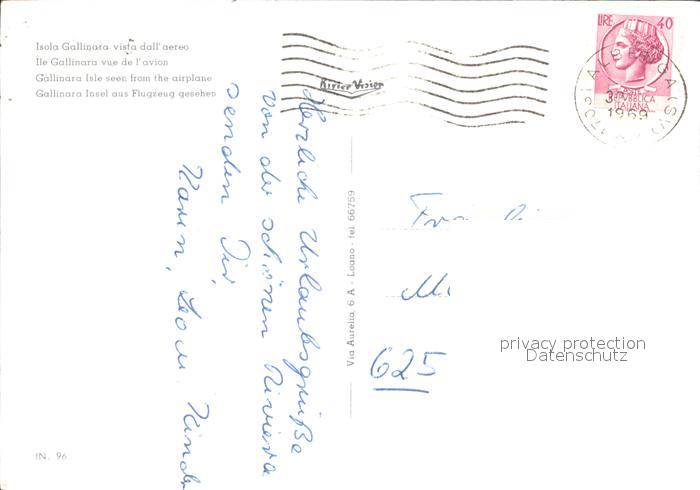 Isola Gallinara vista dall'aereo
Île Gallinara vue de l'avion
Gallinara Isle seen from the airplane
Gallinara Insel aus Flugzeug gesehen
Herzliche Urlaubsgrüße
von der schönen Riviera
senden Dir,
Karen, Leo u. Kinder
IN. 96
Via Aurelia, 6 A - Loano - tel 66759
Rivier Vision
LIRE 40
REPUBBLICA
ITALIANA
1969
M
625
privacy protection
Datenschutz